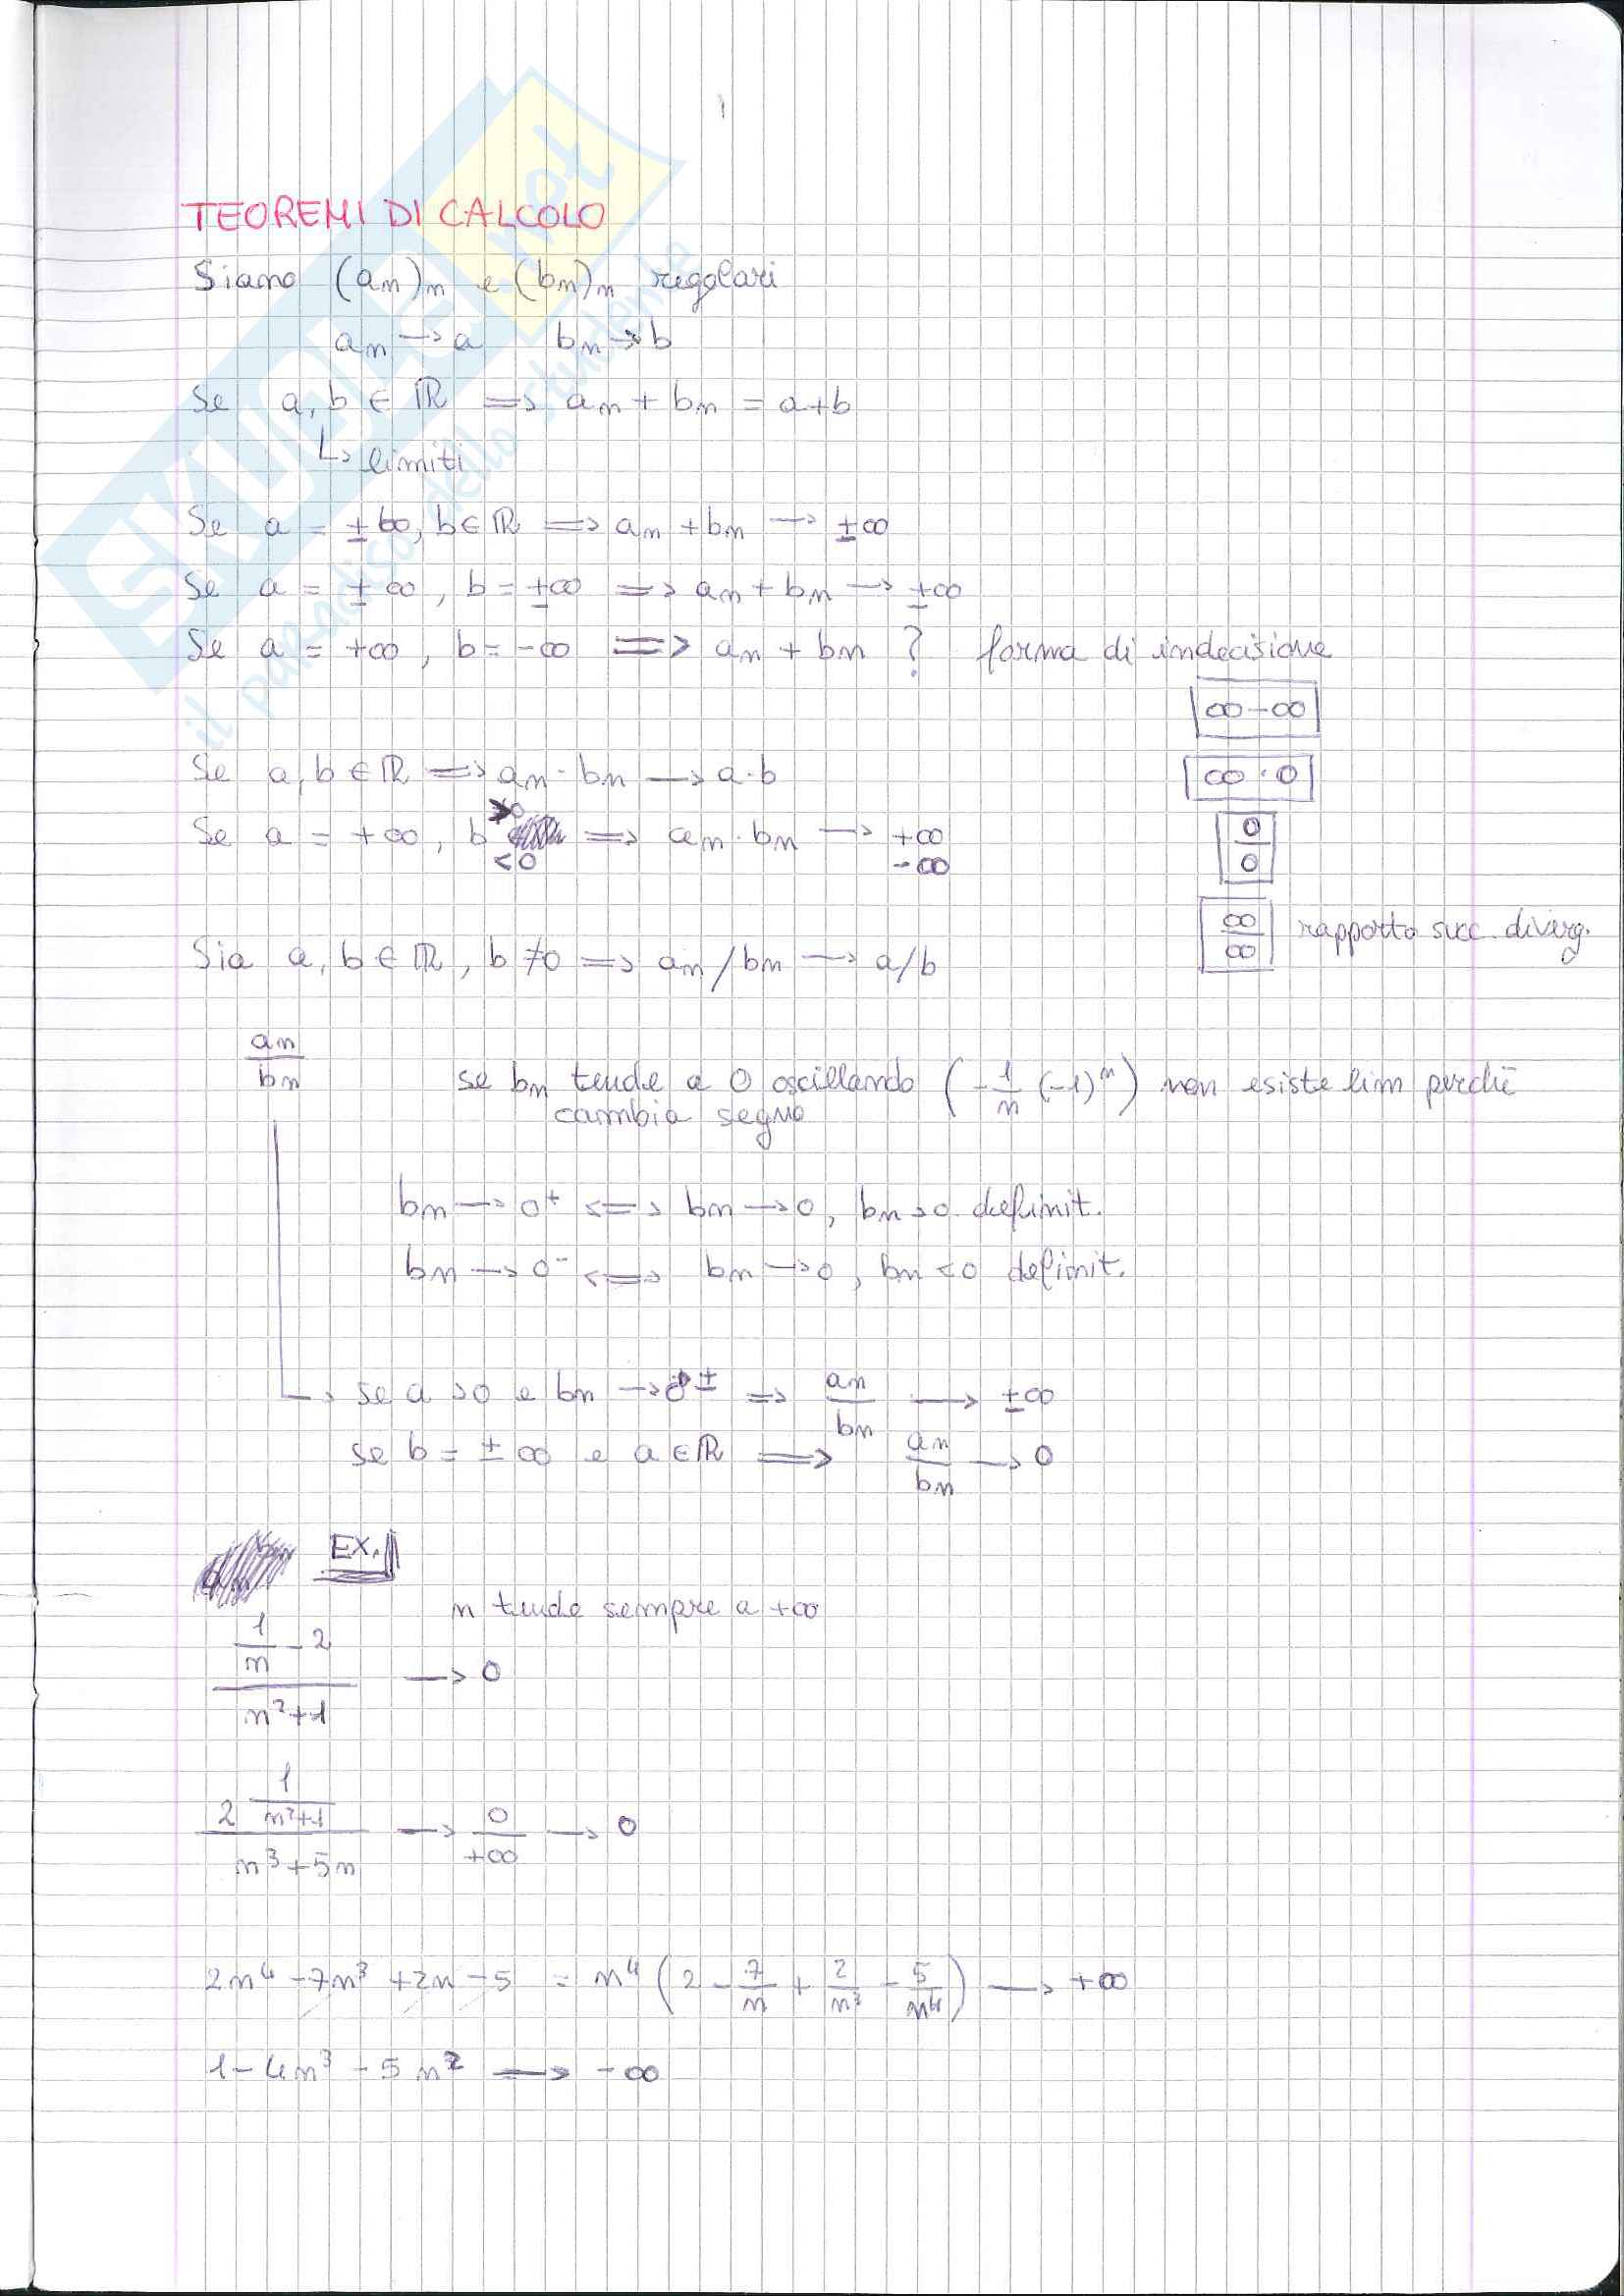 TEOREMI DI CALCOLO
Siano (an)n e (bn)n regolari
an → a bn → b
Se a, b ∈ ℝ => an + bn = a+b
↳ limiti
Se a = ±∞, b ∈ ℝ => an + bn → ±∞
Se a = ±∞, b = ±∞ => an + bn → ±∞
Se a = +∞, b = -∞ => an + bn ? forma di indecisione
∞-∞
Se a, b ∈ ℝ => an · bn → a·b
∞·0
Se a = +∞, b >0 <0 => an · bn → +∞ -∞
0/0
∞/∞ rapporto succ. diverg.
Sia a, b ∈ ℝ, b ≠0 => an/bn → a/b
an/bn
se bn tende a 0 oscillando (-1/n (-1)^n) non esiste lim perchè
cambia segno
bn → 0⁺ <=> bn → 0, bn >0 definit.
bn → 0⁻ <=> bn → 0, bn <0 definit.
↳ se a >0 e bn → 0± => an/bn → ±∞
se b = ±∞ e a ∈ ℝ => an/bn → 0
EX.
n tende sempre a +∞
(1/n - 2)/(n²+1) → 0
2 1/(n²+1) / (n³+5n) → 0/+∞ → 0
2n⁴ -7n³ +2n -5 = n⁴ (2 - 7/n + 2/n³ - 5/n⁴) → +∞
1-4n³ -5n² → -∞
SKUOLA.net
il paradiso dello studente